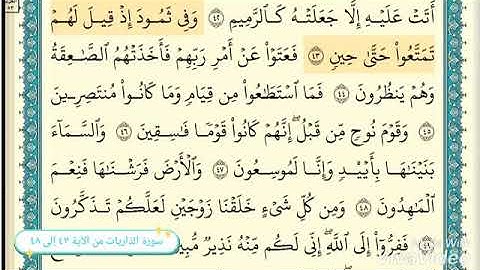 أَتَتْ عَلَيْهِ إِلَّا جَعَلَتْهُ كَالرَّمِيمِ ٤٢ وَفِي ثَمُودَ إِذْ قِيلَ لَهُمْ
تَمَتَّعُوا۟ حَتَّىٰ حِينٍ ٤٣ فَعَتَوْا۟ عَنْ أَمْرِ رَبِّهِمْ فَأَخَذَتْهُمُ الصَّٰعِقَةُ
وَهُمْ يَنظُرُونَ ٤٤ فَمَا اسْتَطَٰعُوا۟ مِن قِيَامٍ وَمَا كَانُوا۟ مُنتَصِرِينَ
٤٥ وَقَوْمَ نُوحٍ مِّن قَبْلُ ۖ إِنَّهُمْ كَانُوا۟ قَوْمًا فَٰسِقِينَ ٤٦ وَالسَّمَآءَ
بَنَيْنَٰهَا بِأَيْي۟دٍ وَإِنَّا لَمُوسِعُونَ ٤٧ وَالْأَرْضَ فَرَشْنَٰهَا فَنِعْمَ
الْمَٰهِدُونَ ٤٨ وَمِن كُلِّ شَىْءٍ خَلَقْنَا زَوْجَيْنِ لَعَلَّكُمْ تَذَكَّرُونَ
٤٩ فَفِرُّوٓا۟ إِلَى اللَّهِ ۖ إِنِّي لَكُم مِّنْهُ نَذِيرٌ مُّبِينٌ
سورة الذاريات من الآية ٤٣ إلى ٤٨